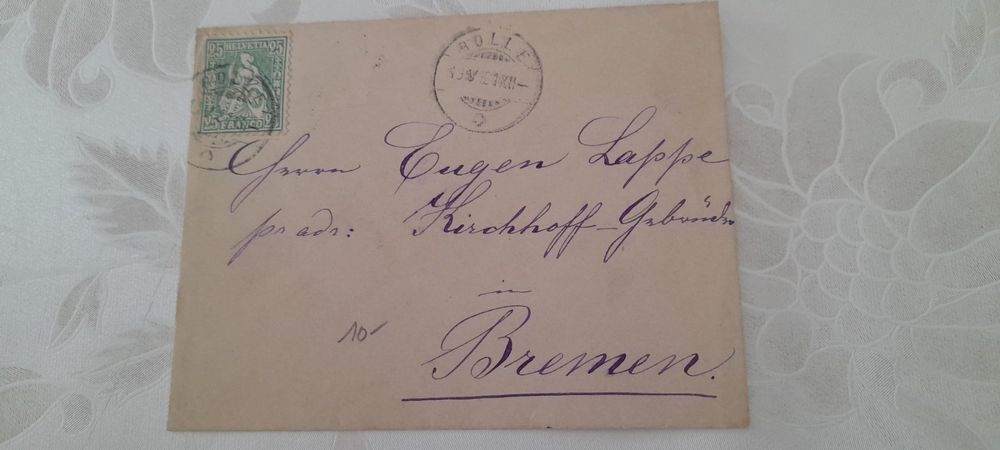 25 HELVETIA 25
25 FRANCO 25
ROLLE
Herrn Eugen Lappe
pr adr: Kirchhoff-Gebrüder
in
Bremen.
10-